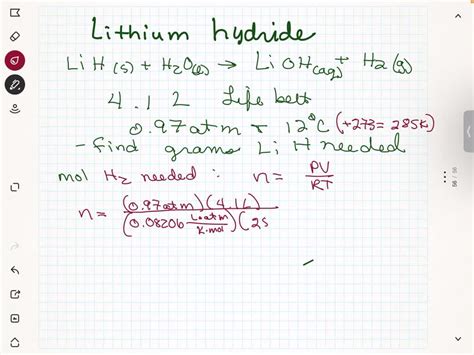 Lithium hydride
LiH(s) + H2O(l) → LiOH(aq) + H2(g)
4.1L Life belt
0.97atm + 12°C (+273= 285K)
- find grams LiH needed
mol H2 needed : n = PV
RT
n = (0.97atm)(4.1L)
(0.08206 L·atm
K·mol)(28